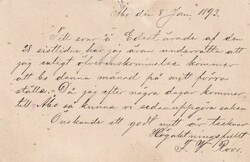 Åbo den 8 Jan. 1893.
Till svar å Edert ärade af den
21 sistlidne har jag äran underrätta att
jag enligt öfverenskommelse kommer
att bo denna månad på mitt förra
ställe. Då jag efter några dagar kommer
till Åbo så kunna vi sedan uppgöra saken
Önskande ett godt nytt år tecknar
Högaktningsfullt